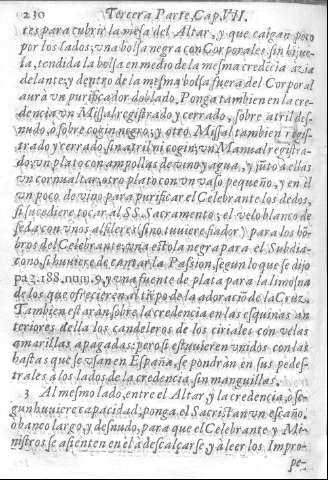 230 Tercera Parte, Cap. VII.
tes para cubrir la mesa del Altar, y que caigan poco
por los lados; vna bolsa negra con Corporales sin hijue-
la, tendida la bolsa en medio de la mesma credēcia àzia
delante; y dentro de la mesma bolsa fuera del Corporal
aurà vn purificador doblado. Ponga tambien en la cre-
dencia vn Missal registrado y cerrado, sobre atril des-
nudo, ò sobre cogin negro; y otro Missal tambien regis-
trado y cerrado, sin atril ni cogin; vn Manual registra-
do; vn plato con ampollas de vino y agua, y jūto à ellas
vn cornualtar, otro plato con vn vaso pequeño, y en èl
vn poco de vino para purificar el Celebrante los dedos,
si sucediere tocar al SS. Sacramento; el velo blanco de
seda con vnos alfileres (sino tuuiere fiador) para los hō-
bros del Celebrante; vna estola negra para el Subdia-
cono, si huuiere de cantar la Passion, segun lo que se dijo
pag. 188. num. 9, y vna fuente de plata para la limosna
de los que ofrecieren al tiēpo de la adoraciō de la Cruz.
Tambien estaràn sobre la credencia en las esquinas an-
teriores della los candeleros de los ciriales con velas
amarillas apagadas: pero si estuuieren vnidos con las
hastas que se vsan en España, se pondràn en sus pedes-
trales à los lados de la credencia, sin manguillas.
3 Al mesmo lado, entre el Altar, y la credencia, ò se-
gun huuiere capacidad, ponga el Sacristan vn escaño,
ò banco largo, y desnudo, para que el Celebrante y Mi-
nistros se assienten en èl à descalçarse, y à leer los Impro-
pe-